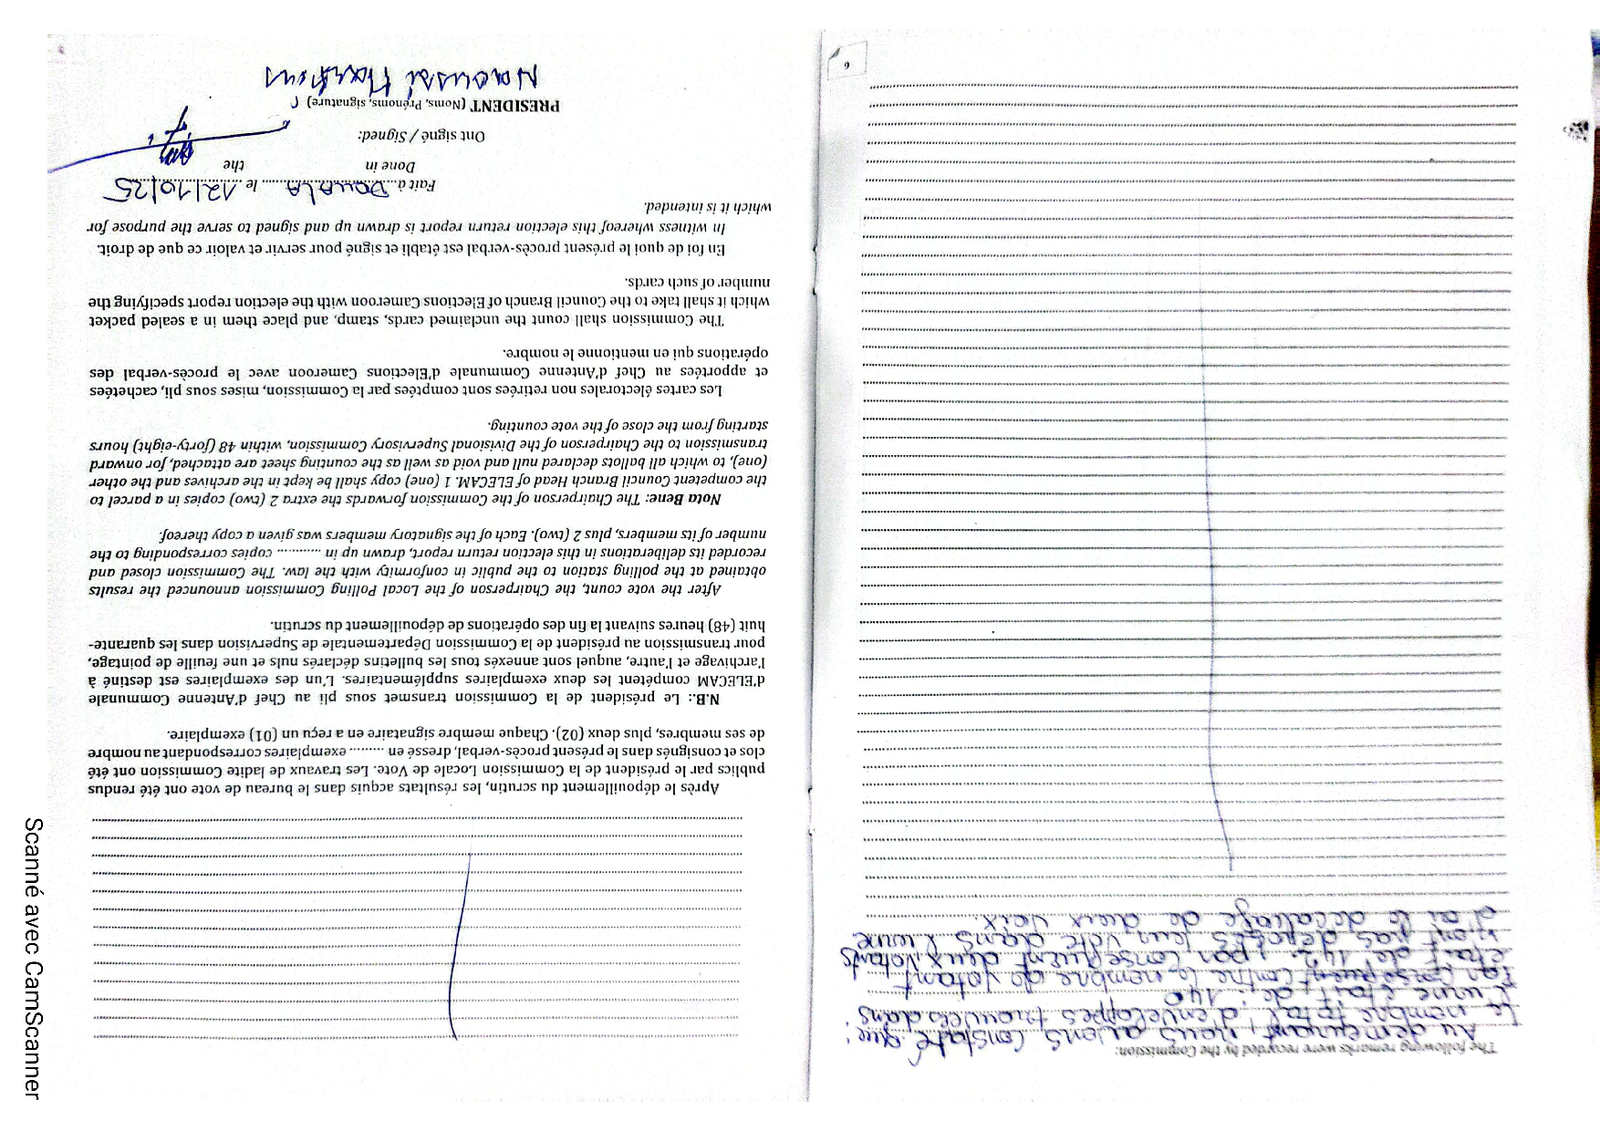 The following remarks were recorded by the Commission:
Au demeurant, nous avons constaté que:
Le nombre total d'enveloppes trouvées dans
l'urne était de: 140
Par conséquent contre le nombre de votant
était de 142; par conséquent deux votants
n'ont pas déposés leur vote dans l'urne
d'où le décalage de deux voix
6
Après le dépouillement du scrutin, les résultats acquis dans le bureau de vote ont été rendus
publics par le président de la Commission Locale de Vote. Les travaux de ladite Commission ont été
clos et consignés dans le présent procès-verbal, dressé en ......... exemplaires correspondant au nombre
de ses membres, plus deux (02). Chaque membre signataire en a reçu un (01) exemplaire.
N.B.: Le président de la Commission transmet sous pli au Chef d'Antenne Communale
d'ELECAM compétent les deux exemplaires supplémentaires. L'un des exemplaires est destiné à
l'archivage et l'autre, auquel sont annexés tous les bulletins déclarés nuls et une feuille de pointage,
pour transmission au président de la Commission Départementale de Supervision dans les quarante-
huit (48) heures suivant la fin des opérations de dépouillement du scrutin.
After the vote count, the Chairperson of the Local Polling Commission announced the results
obtained at the polling station to the public in conformity with the law. The Commission closed and
recorded its deliberations in this election return report, drawn up in ........... copies corresponding to the
number of its members, plus 2 (two). Each of the signatory members was given a copy thereof.
Nota Bene: The Chairperson of the Commission forwards the extra 2 (two) copies in a parcel to
the competent Council Branch Head of ELECAM. 1 (one) copy shall be kept in the archives and the other
(one), to which all ballots declared null and void as well as the counting sheet are attached, for onward
transmission to the Chairperson of the Divisional Supervisory Commission, within 48 (forty-eight) hours
starting from the close of the vote counting.
Les cartes électorales non retirées sont comptées par la Commission, mises sous pli, cachetées
et apportées au Chef d'Antenne Communale d'Elections Cameroon avec le procès-verbal des
opérations qui en mentionne le nombre.
The Commission shall count the unclaimed cards, stamp, and place them in a sealed packet
which it shall take to the Council Branch of Elections Cameroon with the election report specifying the
number of such cards.
En foi de quoi le présent procès-verbal est établi et signé pour servir et valoir ce que de droit.
In witness whereof this election return report is drawn up and signed to serve the purpose for
which it is intended.
Fait à Douala le 12/10/25
Done in the
Ont signé / Signed:
PRESIDENT (Noms, Prénoms, signature)
Scanné avec CamScanner